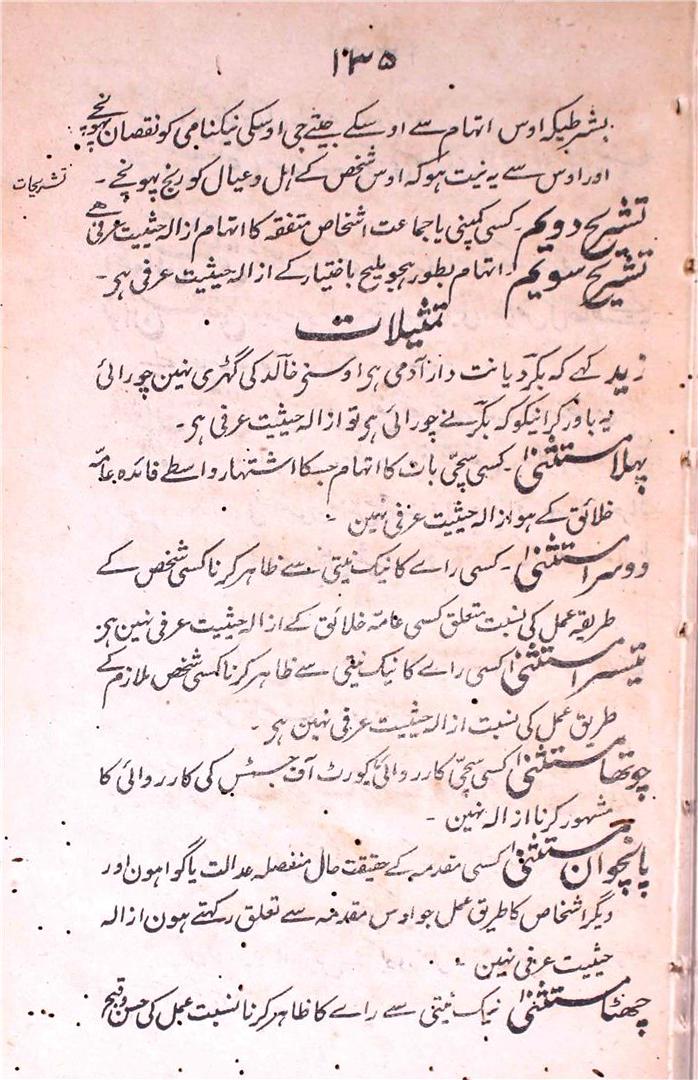 ۱۳۵
بشرطیکہ اوس اتہام سے اوسکے جیتے جی اوسکی نیکنامی کو نقصان پہونچے
اور اوس سے یہ نیت ہو کہ اوس شخص کے اہل و عیال کو رنج پہونچے ۔
تشریحات
تشریح دویم ۔ کسی کمپنی یا جماعت اشخاص متفقہ کا اتہام ازالہ حیثیت عرفی ہے
تشریح سویم ۔ اتہام بطور ہجو ملیح باختیار کے ازالہ حیثیت عرفی ہی ۔
تمثیلات
زید کہے کہ بکر دیانت دار آدمی ہی اوسنے خالد کی گھڑی نہین چورائی
یہ باور کرانیکو کہ بکر نے چورائی ہی تو ازالہ حیثیت عرفی ہی ۔
پہلا مستثنیٰ ۔ کسی سچی بات کا اتہام جسکا اشتہار واسطے فائدہ عامہ
خلائق کے ہو ازالہ حیثیت عرفی نہین ۔
دوسرا مستثنیٰ ۔ کسی راے کا نیک نیتی سے ظاہر کرنا کسی شخص کے
طریقہ عمل کی نسبت متعلق کسی عامہ خلائق کے ازالہ حیثیت عرفی نہین ہی
تیسرا مستثنیٰ کسی راے کا نیک نیتی سے ظاہر کرنا کسی شخص ملازم کے
طریق عمل کی نسبت ازالہ حیثیت عرفی نہین ہی ۔
چوتھا مستثنیٰ کسی سچی کارروائی کورٹ آف جسٹس کی کارروائی کا
مشہور کرنا ازالہ نہین ۔
پانچوان مستثنیٰ کسی مقدمہ کے حقیقت حال منفصلہ عدالت یا گواہون اور
دیگر اشخاص کا طریق عمل جو اوس مقدمہ سے تعلق رکہتے ہون ازالہ
حیثیت عرفی نہین ۔
چھٹا مستثنیٰ نیک نیتی سے راے کا ظاہر کرنا نسبت عمل کی حسن و قبح